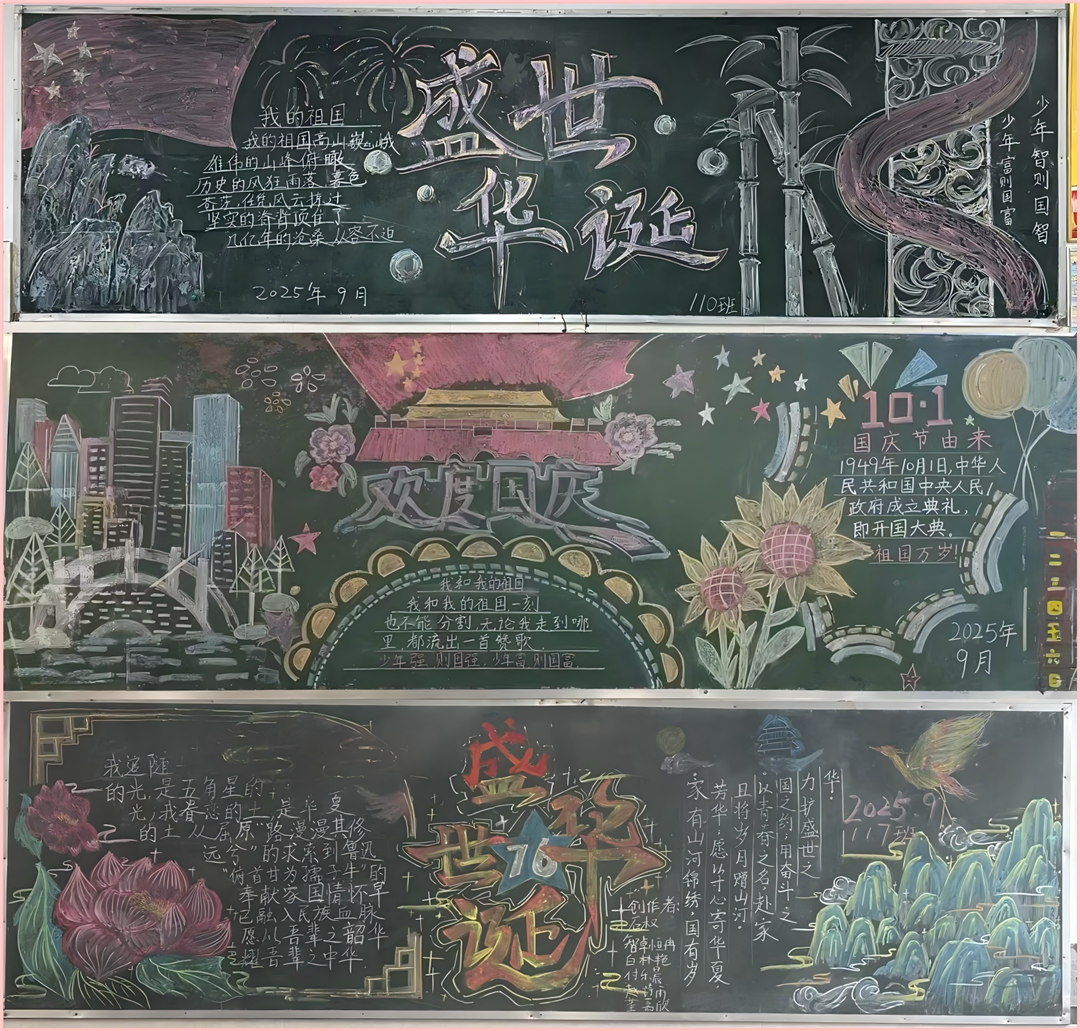 盛世
华诞
我的祖国
我的祖国高山巍峨
雄伟的山峰俯瞰
历史的风狂雨落 暮色
苍茫,任凭风云掠过
坚实的脊背顶住了
几亿年的沧桑从容不迫
2025年9月
110班
少年智则国智
少年富则国富
欢度国庆
我和我的祖国
我和我的祖国一刻
也不能分割,无论我走到哪
里都流出一首赞歌.
少年强则国强.少年富则国富.
10·1
国庆节由来
1949年10月1日,中华人
民共和国中央人民
政府成立典礼,
即开国大典.
祖国万岁!
2025年
9月
一二三四五六日
盛
世 76 华
诞
我寔随
的光,是五角星的
光,我眷恋的土,是华夏
的土从屈原"路漫漫其修
远兮"的求索到鲁迅
"俯首甘为孺子牛"的
奉献家国情怀早
已融入民族血脉
愿以吾辈之韶华
耀吾辈之中华
创作者:
华.
力护盛世之
国之约,用奋斗之
以青春之名,赴家
且将岁月赠山河.
芳华,愿以寸心寄华夏
家有山河锦绣,国有岁
2025.9
117班